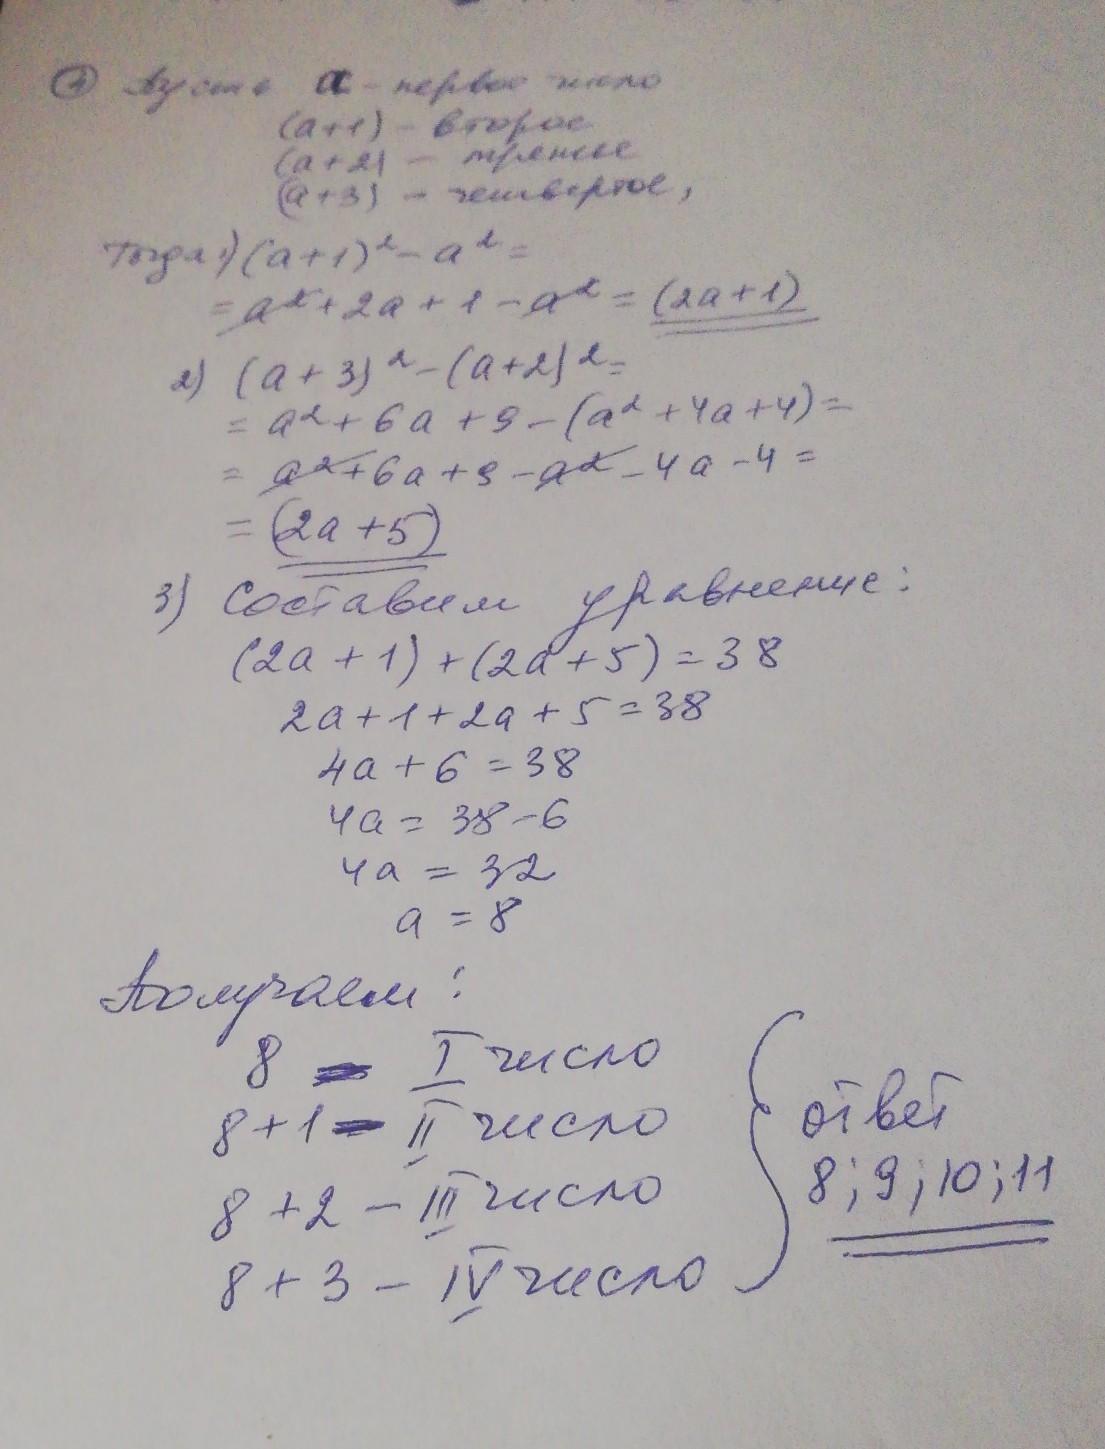 ① Пусть a - первое число
(a+1) - второе
(a+2) - третье
(a+3) - четвертое,
Тогда 1) (a+1)² - a² =
= a² + 2a + 1 - a² = (2a+1)
2) (a+3)² - (a+2)² =
= a² + 6a + 9 - (a² + 4a + 4) =
= a² + 6a + 9 - a² - 4a - 4 =
= (2a + 5)
3) Составим уравнение:
(2a + 1) + (2a + 5) = 38
2a + 1 + 2a + 5 = 38
4a + 6 = 38
4a = 38 - 6
4a = 32
a = 8
Получаем:
8 - I число
8 + 1 - II число
8 + 2 - III число
8 + 3 - IV число
ответ
8; 9; 10; 11